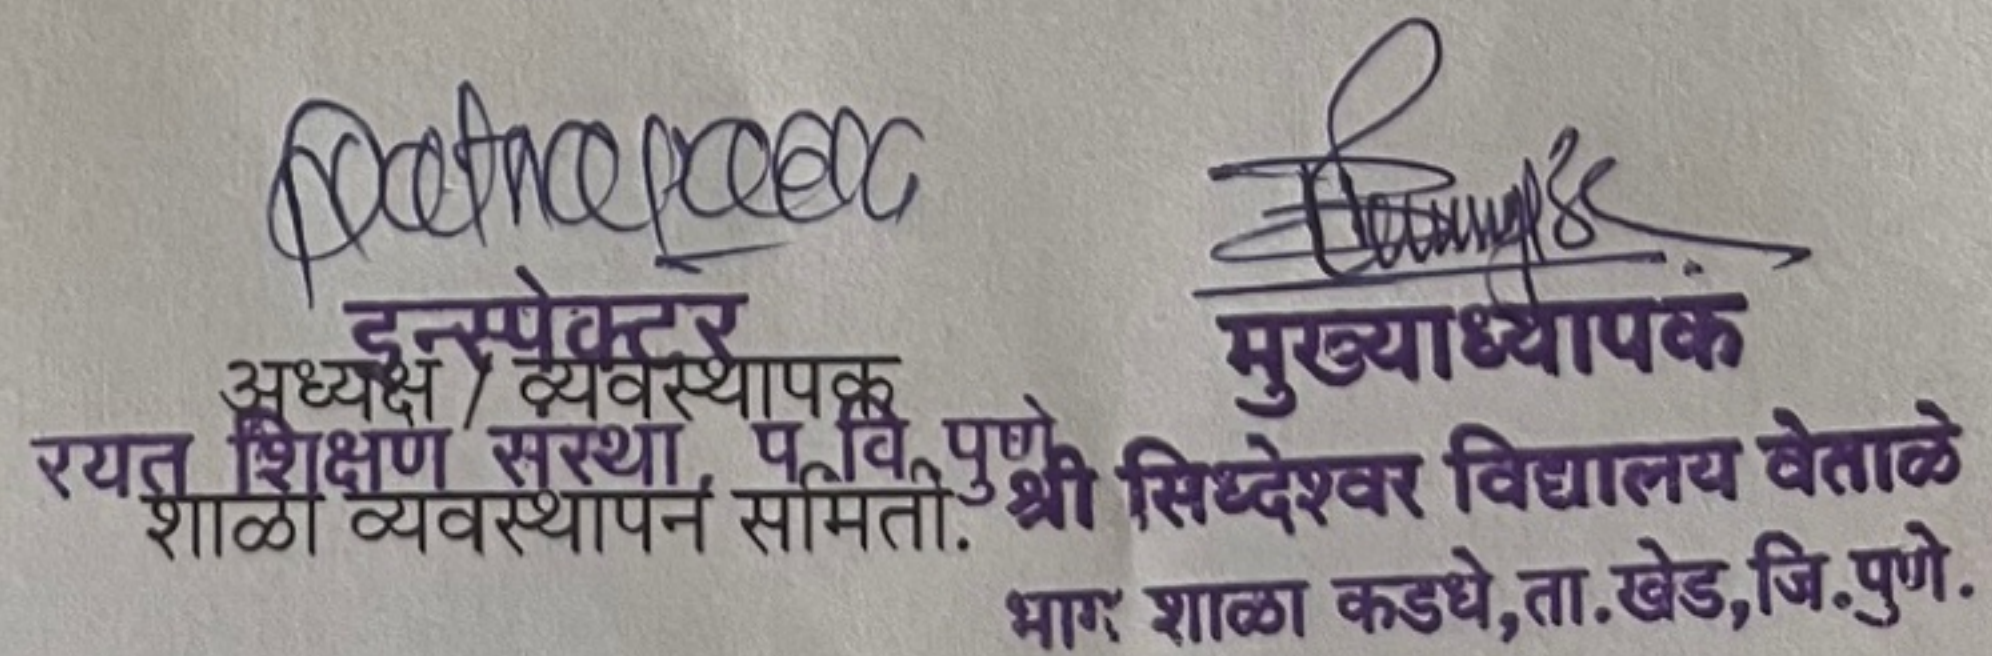 इन्स्पेक्टर
अध्यक्ष / व्यवस्थापक
रयत शिक्षण संस्था, प. वि. पुणे
शाळा व्यवस्थापन समिती.
मुख्याध्यापक
श्री सिध्देश्वर विद्यालय वेताळे
भाग शाळा कडधे,ता.खेड,जि.पुणे.